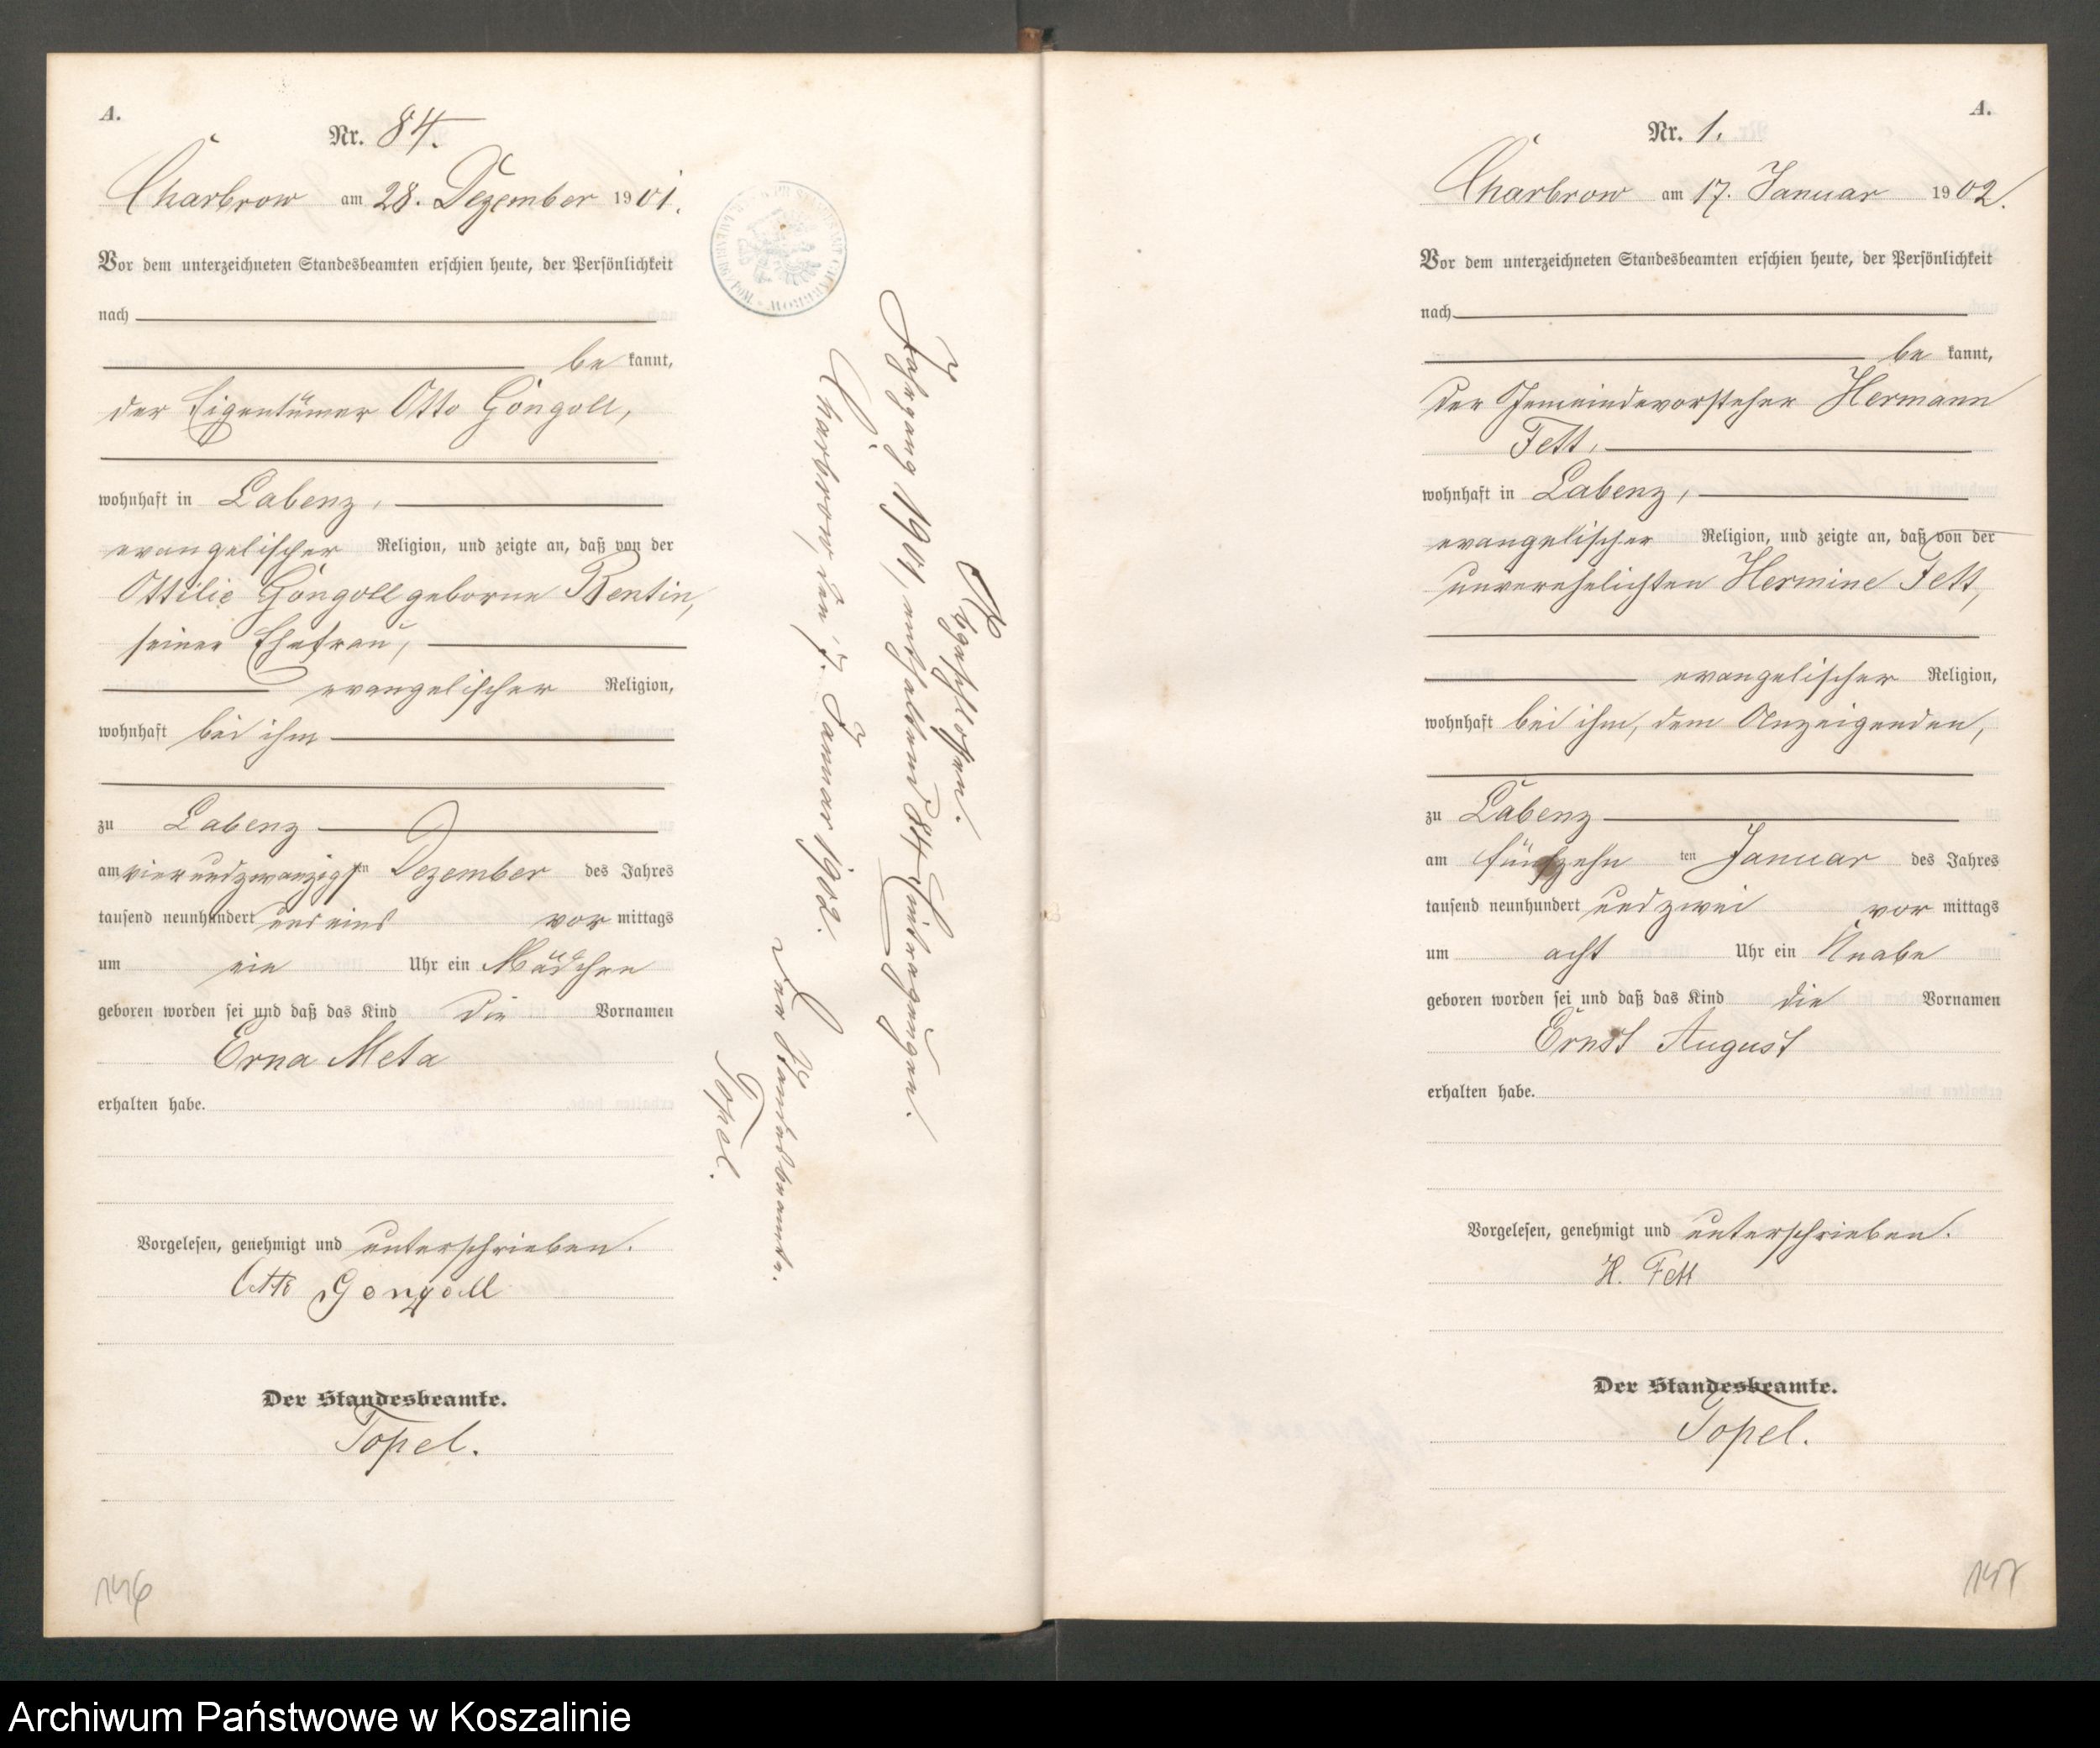 A.
Nr. 84.
Charbrow am 28. Dezember 1901.
Vor dem unterzeichneten Standesbeamten erschien heute, der Persönlichkeit
nach
be kannt,
der Eigentümer Otto Göngoll,
wohnhaft in Labenz,
evangelischer Religion, und zeigte an, daß von der
Ottilie Göngoll geborne Rentin,
seiner Ehefrau,
evangelischer Religion,
wohnhaft bei ihm
zu Labenz
am vierundzwanzigsten Dezember des Jahres
tausend neunhundert und eins vor mittags
um ein Uhr ein Mädchen
geboren worden sei und daß das Kind die Vornamen
Erna Meta
erhalten habe.
Vorgelesen, genehmigt und unterschrieben.
Otto Gongoll
Der Standesbeamte.
Topel.
146
Abgeschlossen.
Jahrgang 1901, enthaltend 84 Eintragungen.
Charbrow, den 3. Januar 1902.
Der Standesbeamte.
Topel.
A.
Nr. 1.
Charbrow am 17. Januar 1902.
Vor dem unterzeichneten Standesbeamten erschien heute, der Persönlichkeit
nach
be kannt,
der Gemeindevorsteher Hermann
Fett,
wohnhaft in Labenz,
evangelischer Religion, und zeigte an, daß von der
unverehelichten Hermine Fett,
evangelischer Religion,
wohnhaft bei ihm, dem Anzeigenden,
zu Labenz
am fünfzehn ten Januar des Jahres
tausend neunhundert und zwei vor mittags
um acht Uhr ein Knabe
geboren worden sei und daß das Kind die Vornamen
Ernst August
erhalten habe.
Vorgelesen, genehmigt und unterschrieben.
H. Fett
Der Standesbeamte.
Topel.
147
Archiwum Państwowe w Koszalinie